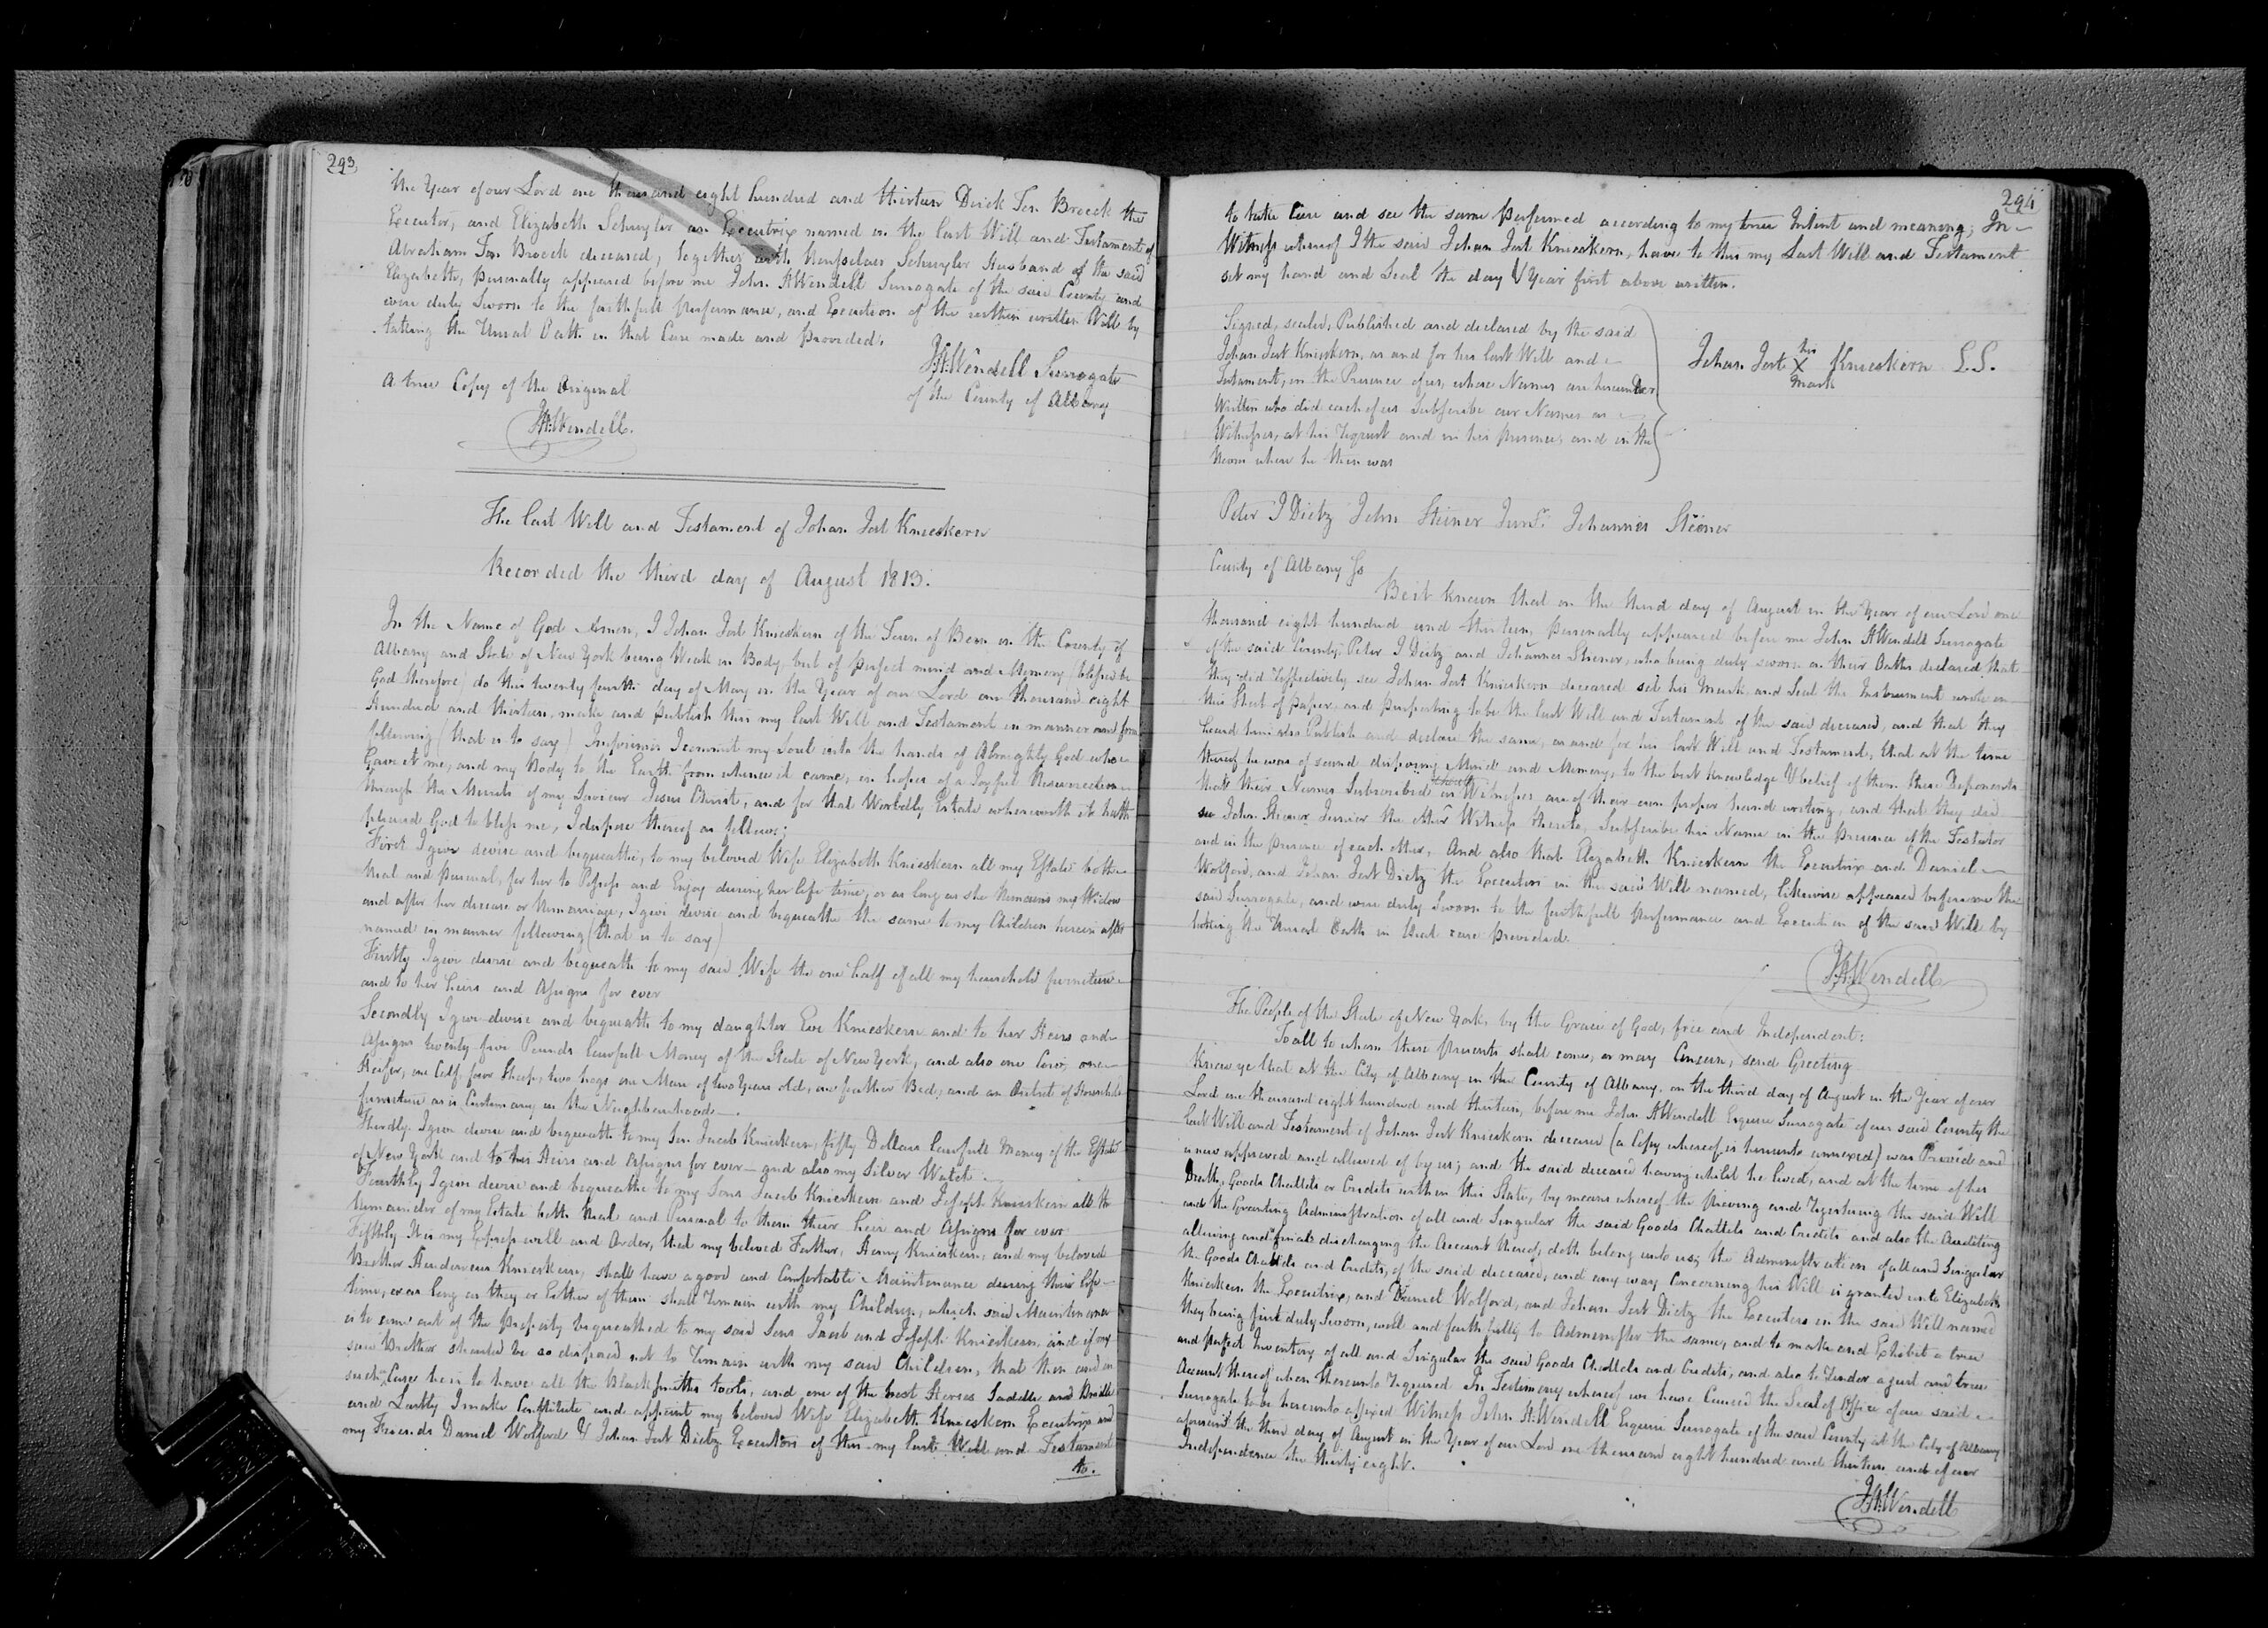 293
the Year of our Lord one thousand eight hundred and thirteen Dirck Ten Broeck the
Executor, and Elizabeth Schuyler an Executrix named in the last Will and Testament of
Abraham Ten Broeck deceased, together with Ranssolaer Schuyler Husband of the said
Elizabeth, personally appeared before me John H Wendell Surrogate of the said County and
were duly Sworn to the faithfull performance, and Execution of the within written Will by
taking the Usual Oath in that Case made and provided.
J.H. Wendell Surrogate
of the County of Albany
A true Copy of the Original
J.H. Wendell.
The last Will and Testament of Johan Jost Knieskern
Recorded the third day of August 1813.
In the Name of God Amen, I Johan Jost Knieskern of the Town of Bern in the County of
Albany and State of New York being Weak in Body, but of perfect mind and Memory (blessed be
God therefore) do this twenty fourth day of May in the Year of our Lord one thousand eight
Hundred and thirteen, make and publish this my last Will and Testament in manner and form
following (that is to say) Imprimis I commit my Soul into the hands of Almighty God who
Gave it me, and my Body to the Earth from whence it came, in hopes of a Joyful Resurrection
through the Merits of my Saviour Jesus Christ, and for that Worldly Estate wherewith it hath
pleased God to bless me, I dispose thereof as follows;
First I give devise and bequeathe, to my beloved Wife Elizabeth Knieskern all my Estate both
Real and personal, for her to Possess and Enjoy during her life time, or as long as she Remains my Widow
and after her decease or Remarriage, I give devise and bequeathe the same to my Children herein after
named in manner following (that is to say)
Firstly I give devise and bequeath to my said Wife the one half of all my household furniture
and to her heirs and Assigns for ever
Secondly I give devise and bequeath to my daughter Eve Knieskern and to her Heirs and
Assigns twenty five Pounds lawfull Money of the State of New York, and also one Cow, one
Heifer, one Calf, four Sheep, two hogs one Mare of two Years old, one feather Bed, and an Outset of Household
furniture as is Customary in the Neighbourhood
Thirdly I give devise and bequeath to my Son Jacob Knieskern, fifty Dollars lawfull Money of the Estate
of New York and to his Heirs and Assigns for ever and also my Silver Watch
Fourthly I give devise and bequeathe to my Sons Jacob Knieskern and Joseph Knieskern all the
Remainder of my Estate both Real and Personal to them their heirs and Assigns for ever
Fifthly It is my Express will and Order, that my beloved Father, Henry Knieskern, and my beloved
Brother Knieskern, shall have a good and Comfortable Maintenance during their life
time, or as long as they or Either of them shall Remain with my Children, which said Maintenance
is to come out of the property bequeathed to my said Sons Jacob and Joseph Knieskern, and if my
said Brother should be so disposed not to Remain with my said Children, that then and in
such Case he is to have all the Blacksmiths tools, and one of the best Horses Saddle and Bridle
and Lastly I make Constitute and appoint my beloved Wife Elizabeth Knieskern Executrix and
my Friends Daniel Wolford & Johan Jost Dietz Executors of this my last Will and Testament
to.
294
to take Care and see the same performed according to my true Intent and meaning; In
Witness whereof I the said Johan Jost Knieskern, have to this my Last Will and Testament
set my hand and Seal the day & Year first above written.
Signed, sealed, Published and declared by the said
Johan Jost Knieskern, as and for his last Will and
Testament, in the Presence of us, whose Names are hereunder
Written who did each of us Subscribe our Names as
Witnesses, at his Request and in his presence, and in the
Room where he then was
Johan Jost his X mark Knieskern L.S.
Peter J Dietz John Steiner Junr. Johannes Steiner
County of Albany ss
Be it known that on the third day of August in the Year of our Lord one
thousand eight hundred and thirteen, personally appeared before me John H Wendell Surrogate
of the said County Peter J Dietz and Johannes Steiner, who being duly sworn on their Oaths declared that
they did Respectively see Johan Jost Knieskern deceased set his Mark and Seal the Instrument wrote on
this Sheet of paper, and purporting to be the last Will and Testament of the said deceased, and that they
heard him also Publish and declare the same, as and for his last Will and Testament, that at the time
thereof he was of sound disposing Mind and Memory, to the best knowledge & belief of them these Deponents
that their Names Subscribed as Witnesses are of their own proper hand writing, and that they did
see John Steiner Junior the other Witness thereto, Subscribe his Name in the presence of the Testator
and in the presence of each other, And also that Elizabeth Knieskern the Executrix and Daniel
Wolford, and Johan Jost Dietz the Executors in the said Will named, likewise appeared before me the
said Surrogate, and were duly Sworn to the faithfull performance and Execution of the said Will by
taking the Usual Oath in that case provided.
J.H. Wendell
The People of the State of New York, by the Grace of God, free and Independent:
To all to whom these presents shall come, or may Concern, send Greeting
Know ye that at the City of Albany in the County of Albany on the third day of August in the Year of our
Lord one thousand eight hundred and thirteen, before me John H Wendell Esquire Surrogate of our said County the
last Will and Testament of Johan Jost Knieskern deceased (a Copy whereof is hereunto annexed) was Proved and
is now approved and allowed of by us; and the said deceased having whilst he lived, and at the time of his
Death, Goods Chattels or Credits within this State, by means whereof the proving and Registering the said Will
and the Granting Administration of all and Singular the said Goods Chattels and Credits and also the Auditing
allowing and final discharging the Account thereof, doth belong unto us; the Administration of all and Singular
the Goods Chattels and Credits, of the said deceased, and any way Concerning his Will is granted unto Elizabeth
Knieskern the Executrix, and Daniel Wolford, and Johan Jost Dietz the Executors in the said Will named
they being first duly Sworn, well and faithfully to Administer the same, and to make and Exhibit a true
and perfect Inventory of all and Singular the said Goods Chattels and Credits, and also to Render a just and true
Account thereof when thereunto Required In Testimony whereof we have Caused the Seal of Office of our said
Surrogate to be hereunto affixed Witness John H. Wendell Esquire Surrogate of the said County at the City of Albany
aforesaid the third day of August in the Year of our Lord one thousand eight hundred and thirteen and of our
Independence the thirty eight.
J.H. Wendell